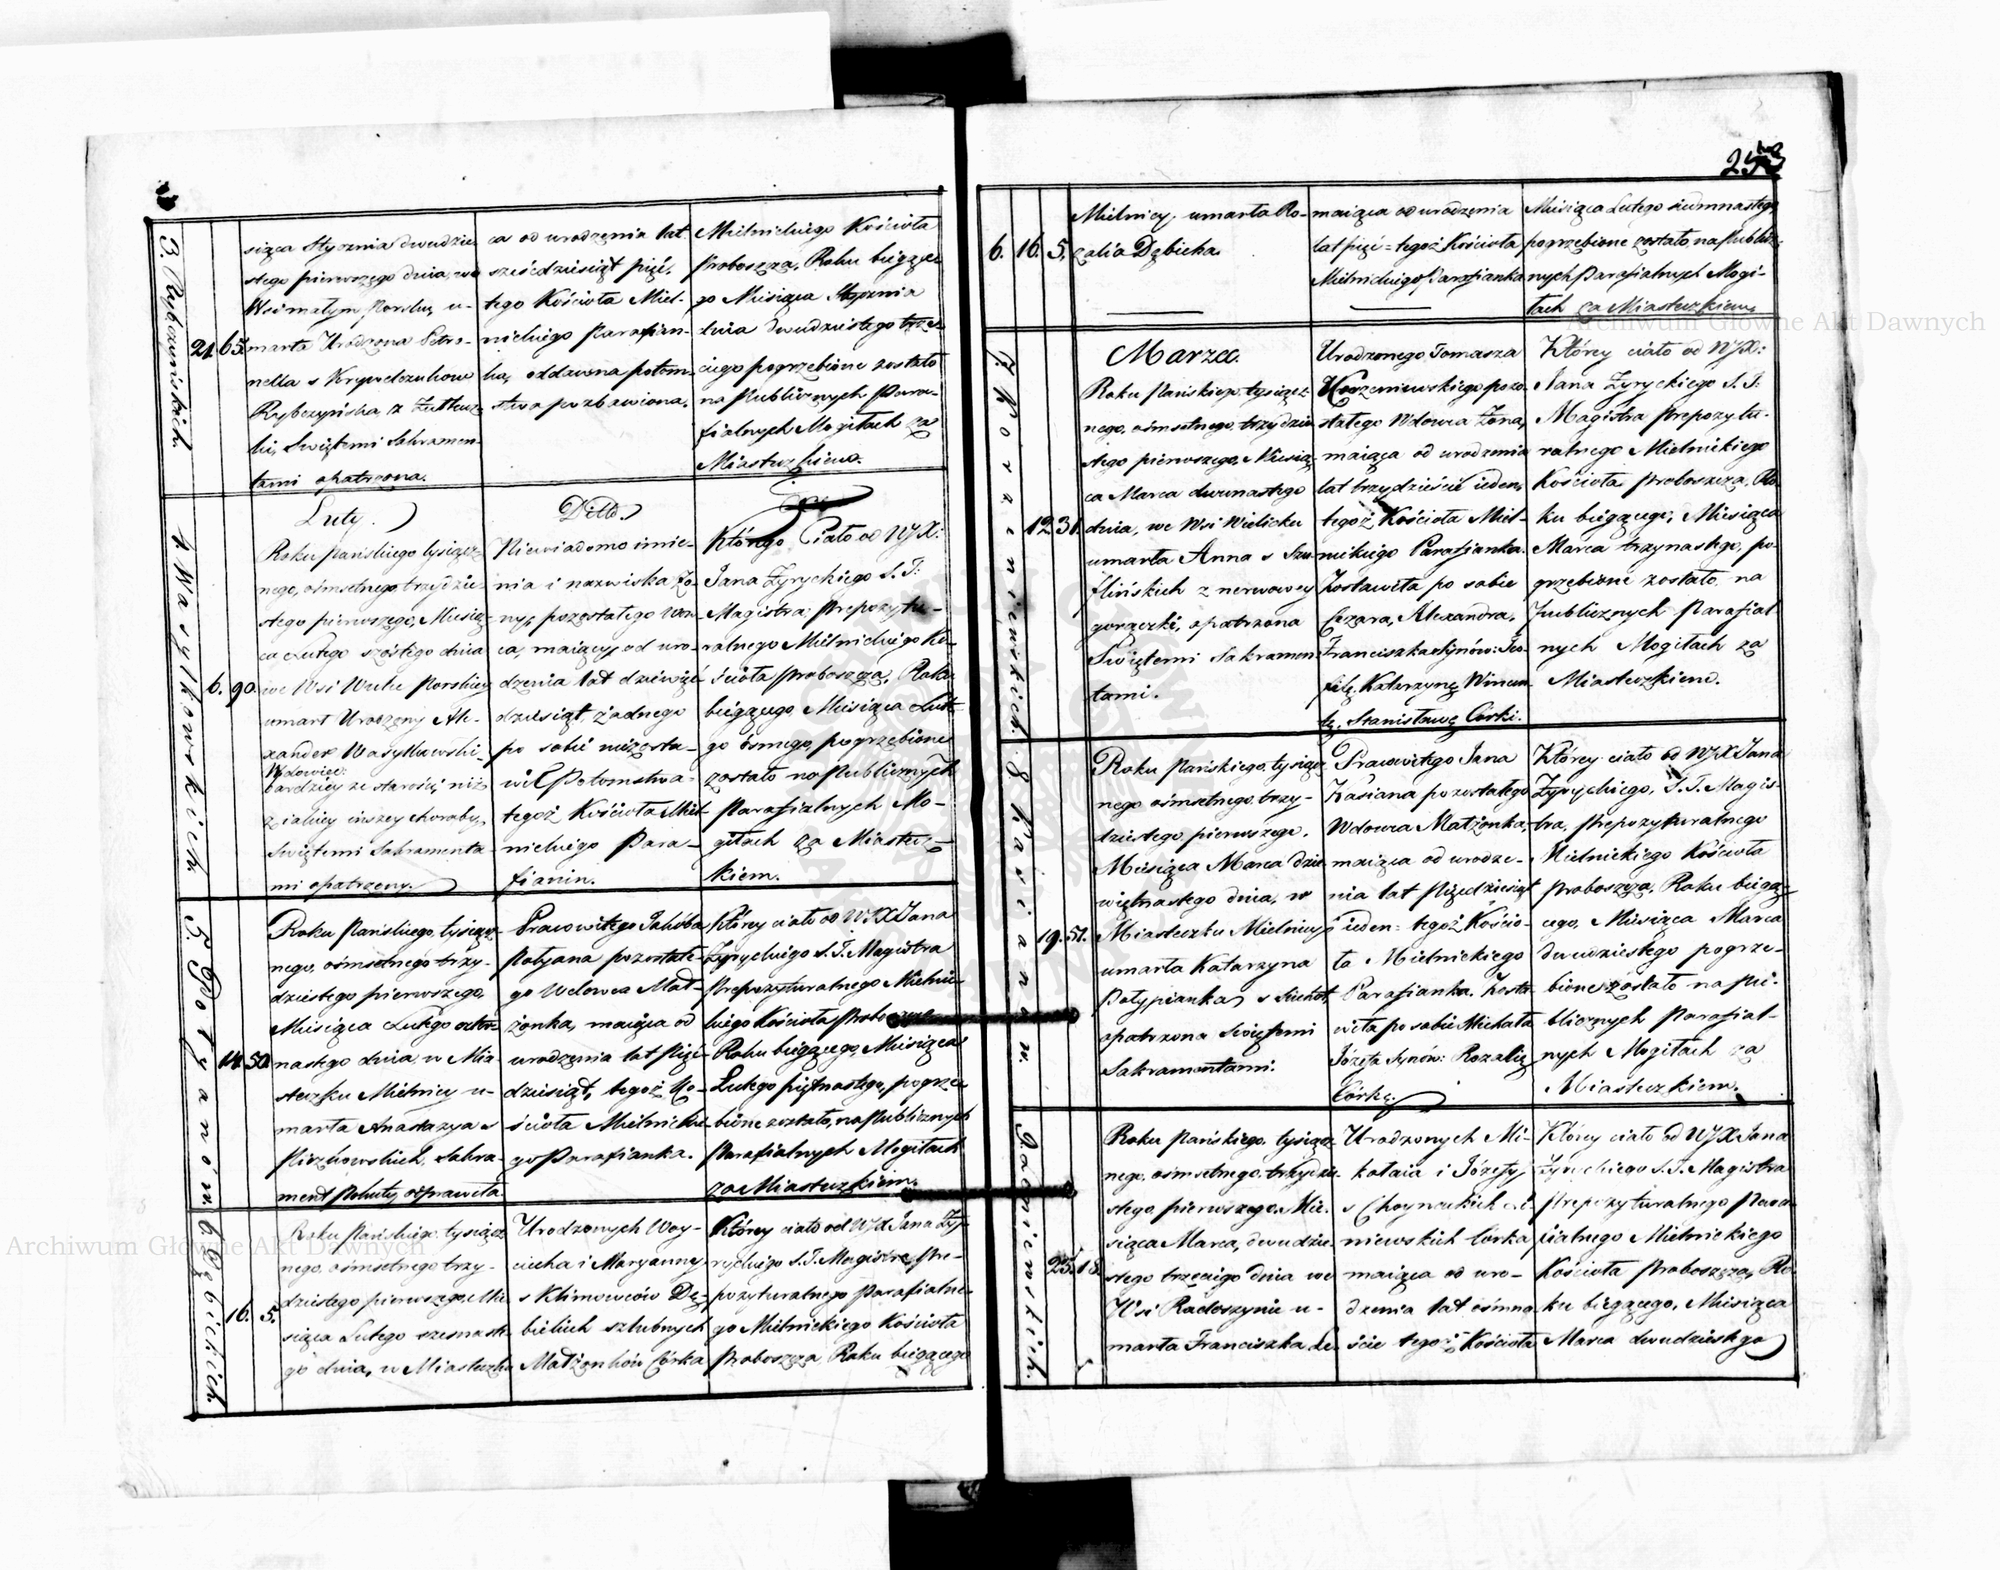 253
3. Rybczynskich
21. 65.
siąca Stycznia dwudzie
stego pierwszego dnia, we
Wsi małym Porsku, u-
marła Urodzona Petro-
nella s Krzywdczuków
Rybczyńska z
ki, Swiętemi Sakramen-
tami opatrzona.
ca od urodzenia lat
sześćdziesiąt pięć,
tego Kościoła Miel-
nickiego Parafian-
ka, oddawna potom-
stwa pozbawiona.
Mielnickiego Kościoła
Proboszcza, Roku bieżące-
go Miesiąca Stycznia
dnia dwudziestego trze-
ciego pogrzebione zostało
na Publicznych Para-
fialnych Mogiłach za
Miasteczkiem.
4 Wasylkowskich
6. 90.
Luty.
Roku Pańskiego tysiącz-
nego, ośmsetnego, trzydzie-
stego pierwszego, Miesią-
ca Lutego szóstego dnia
we Wsi Wulce Porskiey
umarł Urodzony Ale-
xander Wasylkowski
Wdowiec
bardziey ze starości niż
z iakiey inszey choroby,
Swiętemi Sakramenta-
mi opatrzony.
Ditto.
Niewiadomo imie-
nia i nazwiska Żo-
ny, pozostałego Wdow-
ca, maiący od uro-
dzenia lat dziewięć
dziesiąt, żadnego
po sobie niezosta-
wił Potomstwa
tegoż Kościoła Miel-
nickiego Para-
fianin.
Którego Ciało od WJX:
Jana Żyryckiego S. T:
Magistra: Prepozytu-
ralnego Mielnickiego Ko-
ścioła Proboszcza, Roku
bieżącego Miesiąca Lute-
go ósmego, pogrzebione
zostało na Publicznych
Parafialnych Mo-
giłach za Miastecz-
kiem.
5. Potyanów
14. 50.
Roku Pańskiego, tysiącz-
nego, ośmsetnego trzy-
dziestego pierwszego,
Miesiąca Lutego czter-
nastego dnia, w Mia-
steczku Mielnicy u-
marła Anastazya s
Pirzhowskich, Sakra-
ment Pokuty odprawiła
Pracowitego Jakóba
Potyana pozostałe-
go Wdowca Mał-
żonka, maiąca od
urodzenia lat pięć-
dziesiąt, tegoż Ko-
ścioła Mielnickie-
go Parafianka.
Którey ciało od WJX Jana
Żyryckiego S. T. Magistra
Prepozyturalnego Mielnic-
kiego Kościoła Proboszcza
Roku bieżącego, Miesiąca
Lutego piętnastego, pogrze-
bione zostało, na Publicznych
Parafialnych Mogiłach
za Miasteczkiem.
6 Dębickich
16. 5.
Roku Pańskiego tysiącz-
nego, ośmsetnego trzy-
dziestego pierwszego, Mie-
siąca Lutego szesnaste-
go dnia, w Miasteczku
Urodzonych Woy-
ciecha i Maryanny
s Klimowców Dę-
bickich szlubnych
Małżonków Córka
Którey ciało od WJX Jana Ży-
ryckiego S. T. Magistra, Pre-
pozyturalnego Parafialne-
go Mielnickiego Kościoła
Proboszcza Roku bieżącego
6. 16. 5.
Mielnicy, umarła Ro-
zalia Dębicka.
maiąca od urodzenia
lat pięć = tegoż Kościoła
Mielnickiego Parafianka
Miesiąca Lutego siedmnastego,
pogrzebione zostało, na Publicz-
nych Parafialnych Mogi-
łach za Miasteczkiem.
7. Korzeniewskich
12. 31.
Marzec.
Roku Pańskiego, tysiącz-
nego, ośmsetnego, trzydzie-
stego pierwszego, Miesią-
ca Marca dwunastego
dnia, we Wsi Wielicku
umarła Anna s Szu-
flińskich z nerwowey
gorączki, opatrzona
Swiętemi Sakramen-
tami.
Urodzonego Tomasza
Korzeniewskiego pozo-
stałego Wdowca Żona,
maiąca od urodzenia
lat trzydzieści ieden,
tegoż Kościoła Miel-
nickiego Parafianka.
Zostawiła po sobie
Cezara, Alexandra,
Franciszka Synów: Teo-
filę, Katarzynę, Wincen-
tę, Stanisławę Córki.
Którey ciało od WJX:
Jana Żyryckiego S. T:
Magistra Prepozytu-
ralnego Mielnickiego
Kościoła Proboszcza, Ro-
ku bieżącego, Miesiąca
Marca trzynastego, po-
grzebione zostało, na
Publicznych Parafial-
nych Mogiłach za
Miasteczkiem.
8 Kasianów
19. 51.
Roku Pańskiego, tysiącz-
nego ośmsetnego, trzy-
dziestego pierwszego,
Miesiąca Marca dzie-
więtnastego dnia, w
Miasteczku Mielnicy
umarła Katarzyna
Potypianka s Suchot,
opatrzona Swiętemi
Sakramentami.
Pracowitego Jana
Kasiana pozostałego
Wdowca Małżonka,
maiąca od urodze-
nia lat pięćdziesiąt
ieden = tegoż Kościo-
ła Mielnickiego
Parafianka. Zosta-
wiła po sobie Michała
Józefa Synów: Rozalię
Córkę.
Którey ciało od WJX Jana
Żyryckiego, S. T. Magis-
tra, Prepozyturalnego
Mielnickiego Kościoła
Proboszcza, Roku bieżą-
cego, Miesiąca Marca
dwudziestego pogrze-
bione zostało na Pu-
blicznych Parafial-
nych Mogiłach za
Miasteczkiem.
25. 18.
Roku Pańskiego, tysiącz-
nego, ośmsetnego, trzydzie-
stego, pierwszego, Mie-
siąca Marca, dwudzie-
stego trzeciego dnia we
Wsi Radoszynie u-
marła Franciszka
Urodzonych Mi-
kołaia i Józefy
s Choynackich
niewskich Córka
maiąca od uro-
dzenia lat ośmna-
ście tegoż Kościoła
Którey ciało od WJX Jana
Żyryckiego S. T. Magistra
Prepozyturalnego Para-
fialnego Mielnickiego
Kościoła Proboszcza, Ro-
ku bieżącego, Miesiąca
Marca dwudziestego
Archiwum Główne Akt Dawnych
Archiwum Główne Akt Dawnych